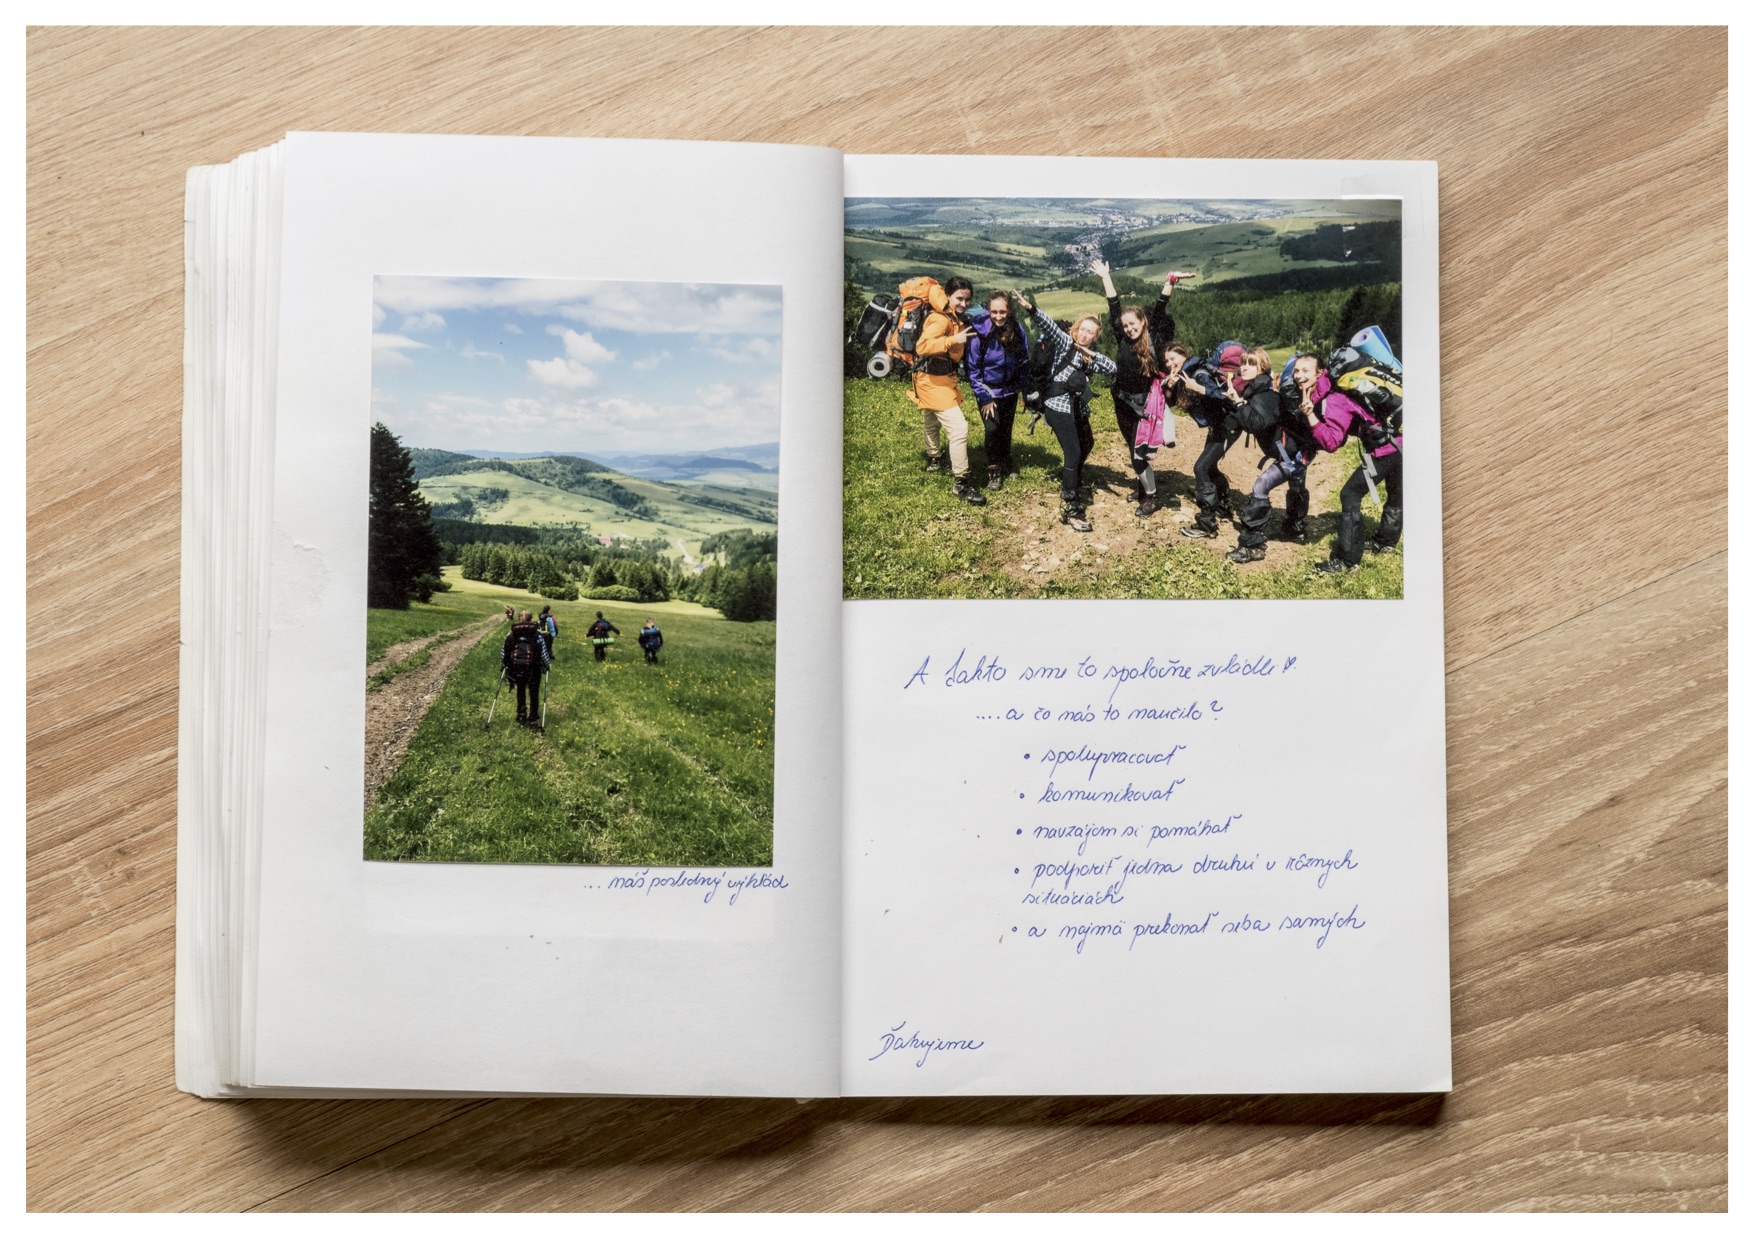 ... náš posledný výhľad
A takto sme to spoločne zvládli
....a čo nás to naučilo?
• spolupracovať
• komunikovať
• navzájom si pomáhať
• podporiť jedna druhú v rôznych
situáciách
• a najmä prekonať seba samých
Ďakujeme